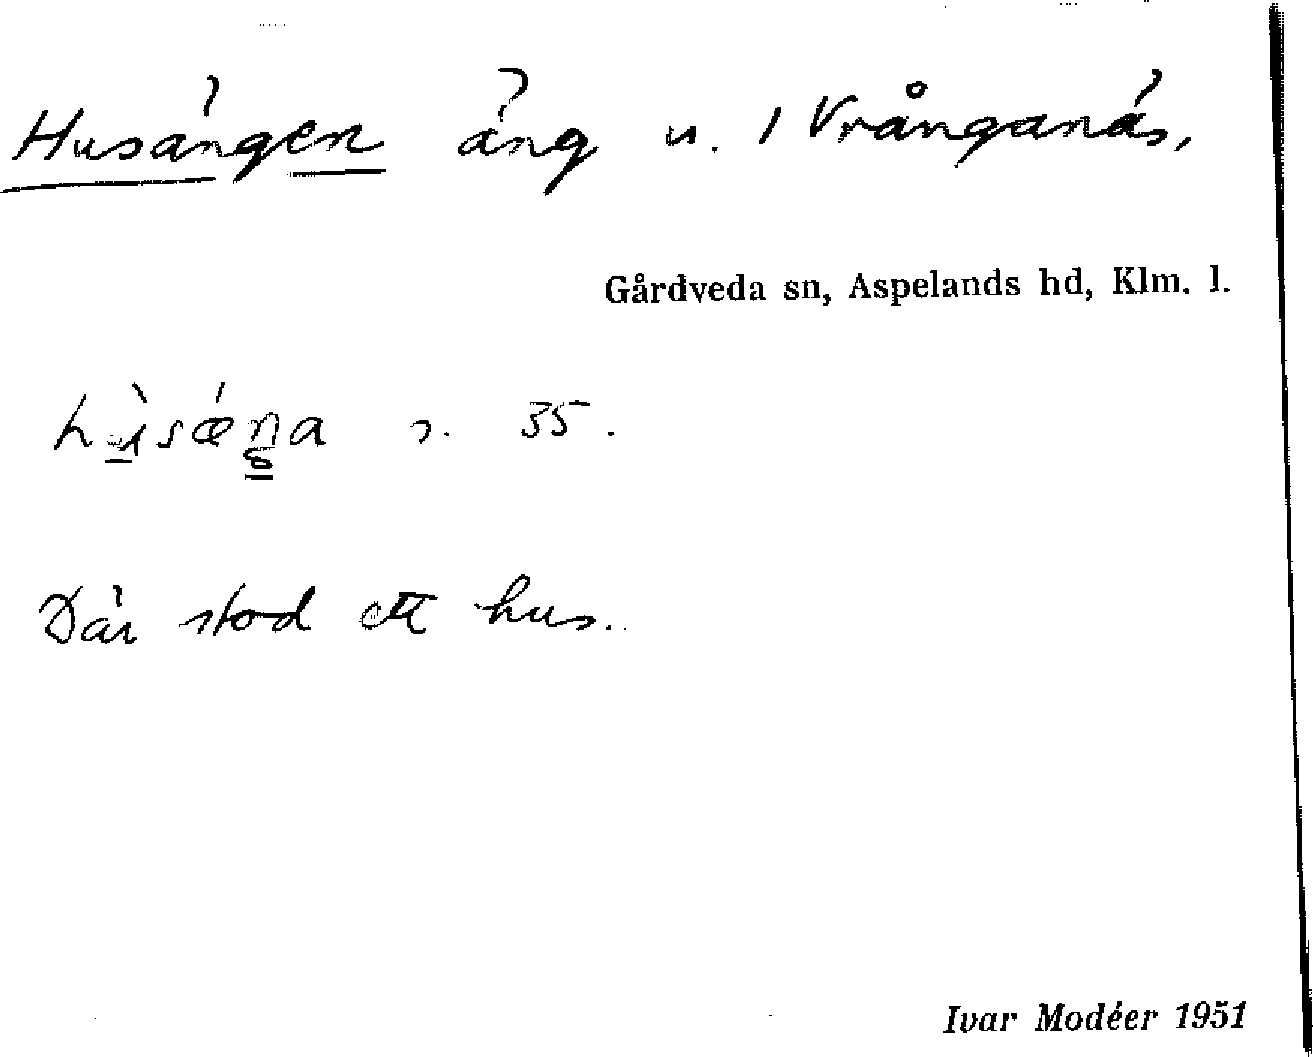 Husängen äng u. 1 Vrånganäs,
Gårdveda sn, Aspelands hd, Klm. l.
hùsǽŋa s. 35.
Där stod ett hus.
Ivar Modéer 1951